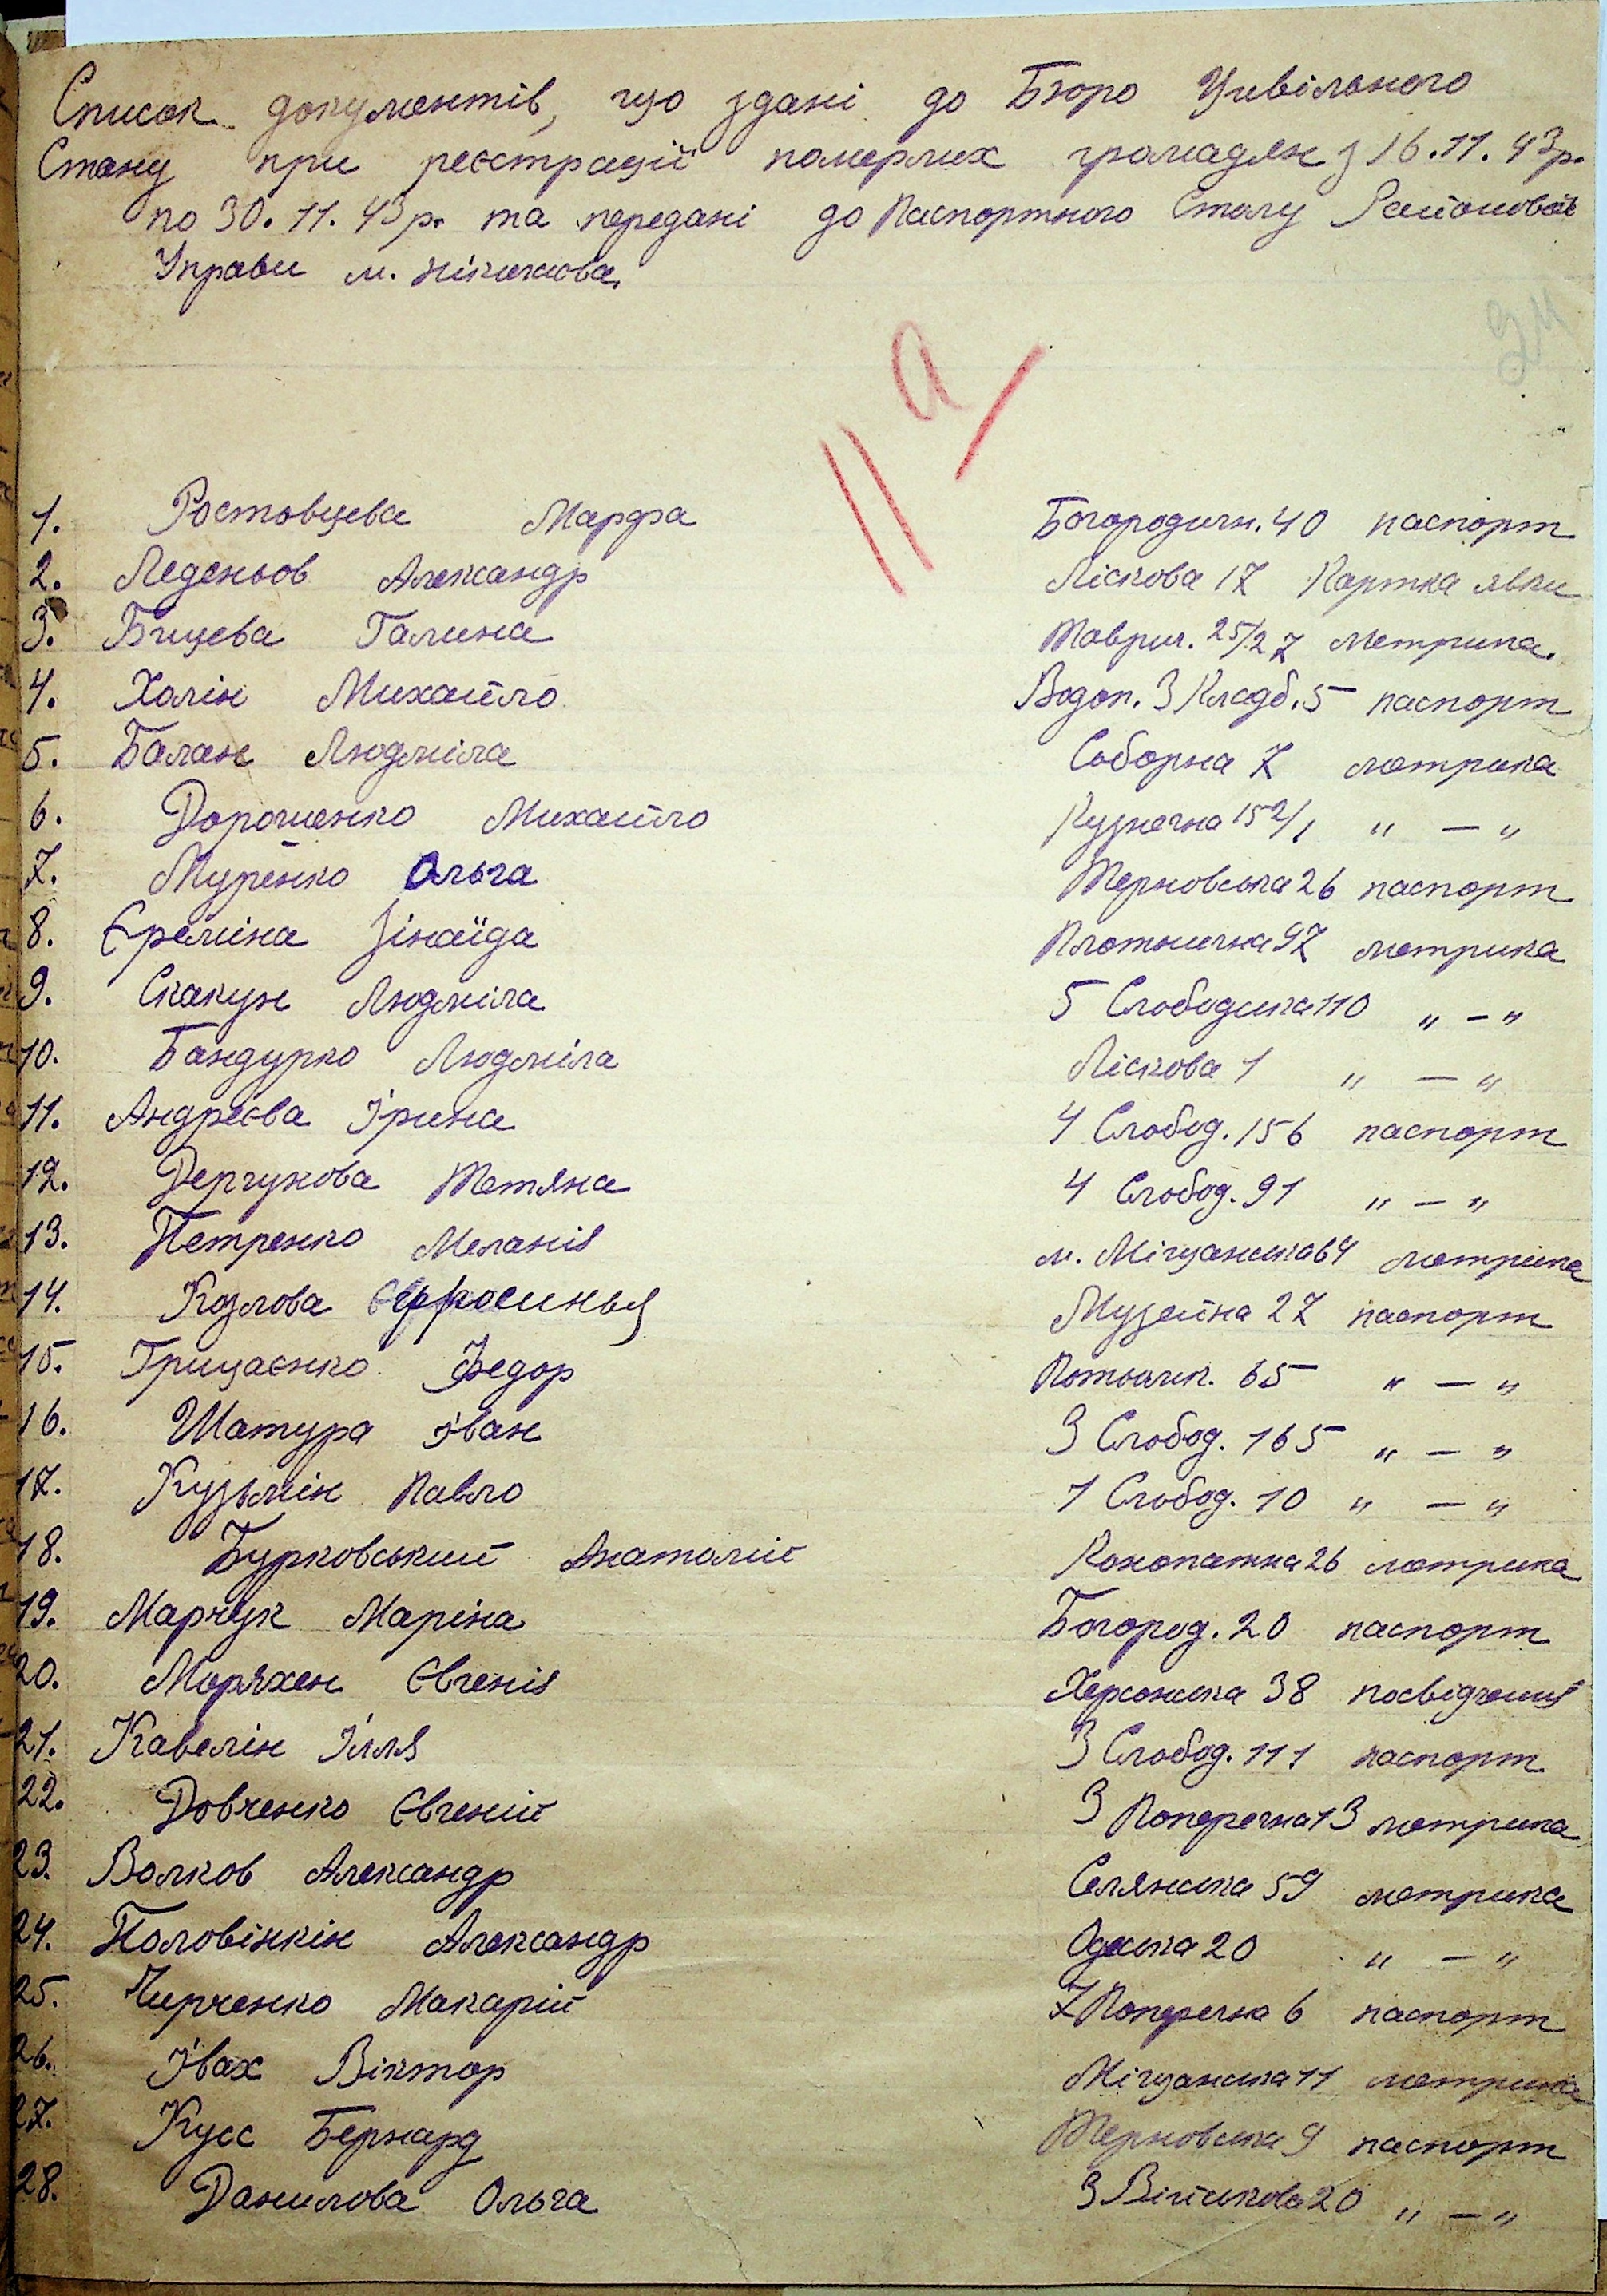 Список документів, що здані до Бюро Цивільного
Стану при реєстрації померлих громадян з 16.11.43р.
по 30.11.43р. та передані до Паспортного Столу Районової
Управи м. Ніколаєва.
11 а/
1. Ростовцева Марфа Богородичн. 40 паспорт
2. Леденьов Александр Ліскова 17 Картка явки
3. Бицева Галина Таврич. 25/27 метрика.
4. Халін Михайло Водоп. 3 Кладб. 5 паспорт
5. Балан Людміла Соборна 7 метрика
6. Дорошенко Михайло Кузнечна 152/1 " — "
7. Муренко Ольга Терновська 26 паспорт
8. Єреміна Зінаїда Плотнична 97 метрика
9. Скакун Людміла 5 Слободська 110 " — "
10. Бандурко Людміла Ліскова 1 " — "
11. Андреєва Ірина 4 Слобод. 156 паспорт
12. Дергунова Тетяна 4 Слобод. 91 " — "
13. Петренко Меланія м. Міщанська 64 метрика
14. Козлова Єфросинья Музейна 27 паспорт
15. Грицаєнко Федор 65 " — "
16. Шатура Іван 3 Слобод. 165 " — "
17. Кузьмін Павло 1 Слобод. 10 " — "
18. Бурковський Анатолій Конопатна 26 метрика
19. Марчук Маріна Богород. 20 паспорт
20. Моряхен Євгенія Херсонська 38 посвідчення
21. Кавелін Ілля 3 Слобод. 111 паспорт
22. Довченко Євгеній 3 Поперечна 13 метрика
23. Волков Александр Селянська 59 метрика
24. Половінкін Александр Одеська 20 " — "
25. Чирченко Макарій 7 Поперечна 6 паспорт
26. Івах Віктор Міщанська 11 метрика
27. Кусс Бернард Терновська 9 паспорт
28. Данилова Ольга 3 Військова 20 " — "